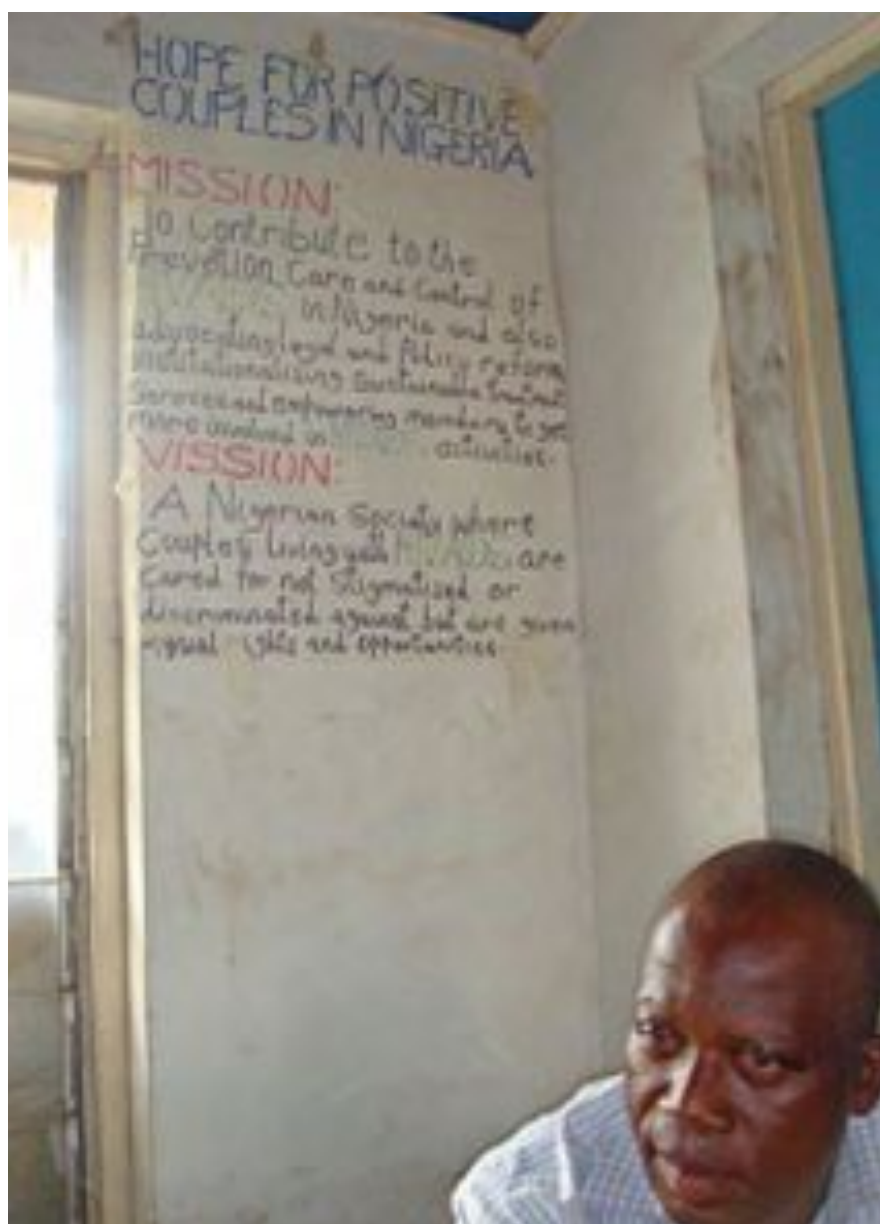 HOPE FOR POSITIVE
COUPLES IN NIGERIA
MISSION:
To Contribute to the
Prevention Care and Control of
in Nigeria and also
advocating legal and Policy reform
institutionalizing sustainable treatment
Services and empowering members to get
more involved in activities.
VISSION:
A Nigerian Society where
Couples living with are
Cared for not Stigmatized or
discriminated against but are given
equal rights and opportunities